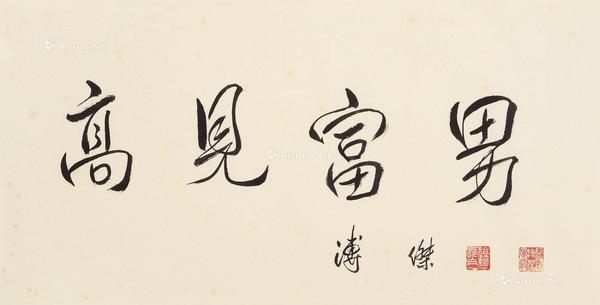 Artron.Net
高見富男
Artron.Net
溥傑
Artron.Net